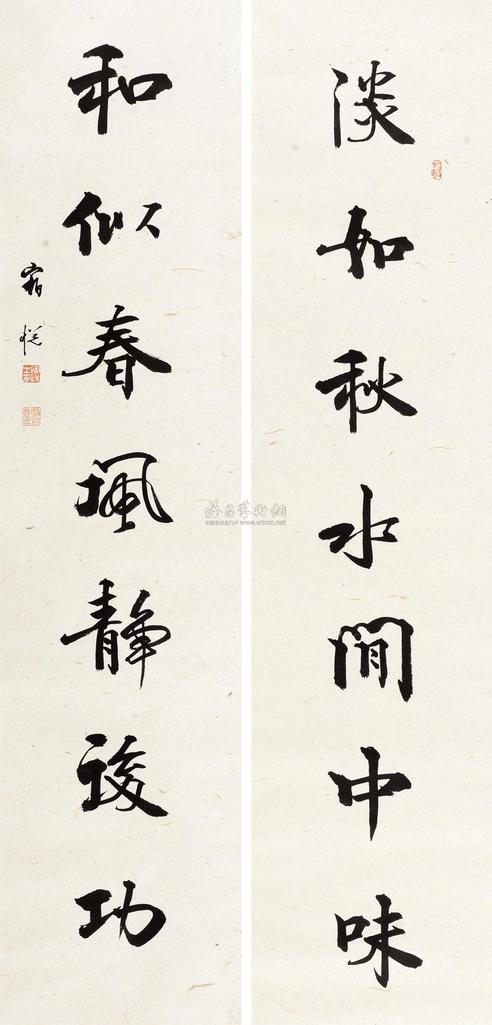 淡如秋水閒中味
和似春風靜後功
雅昌藝術網
www.artron.net